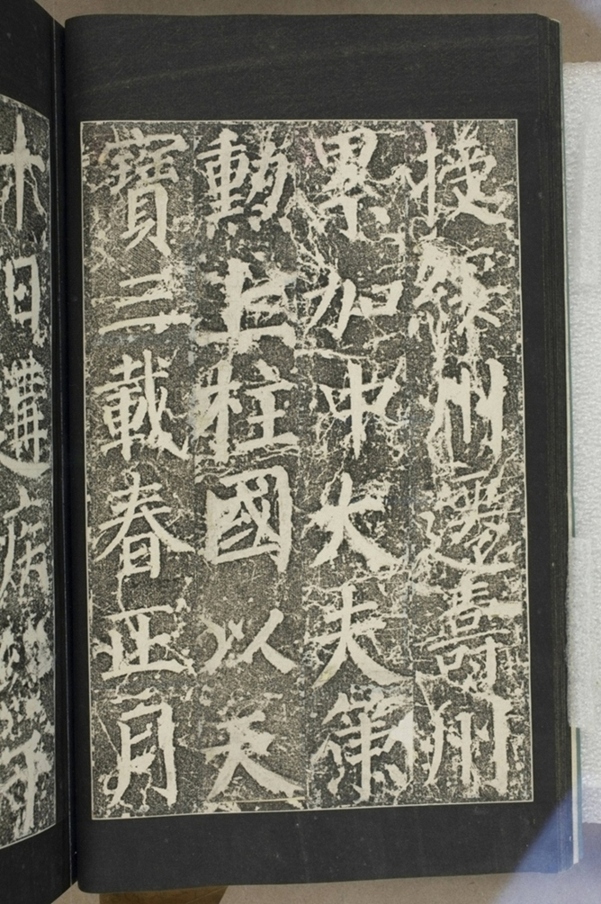 授綏州遷壽州
累加中大夫策
勳上柱國以天
寶三載春正月
十日遘疾終于